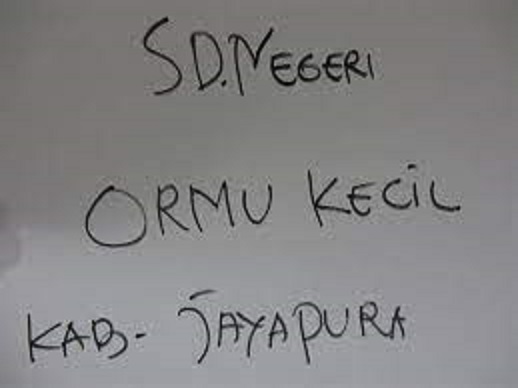 SD.NEGERI
ORMU KECiL
KAB- JAYAPURA